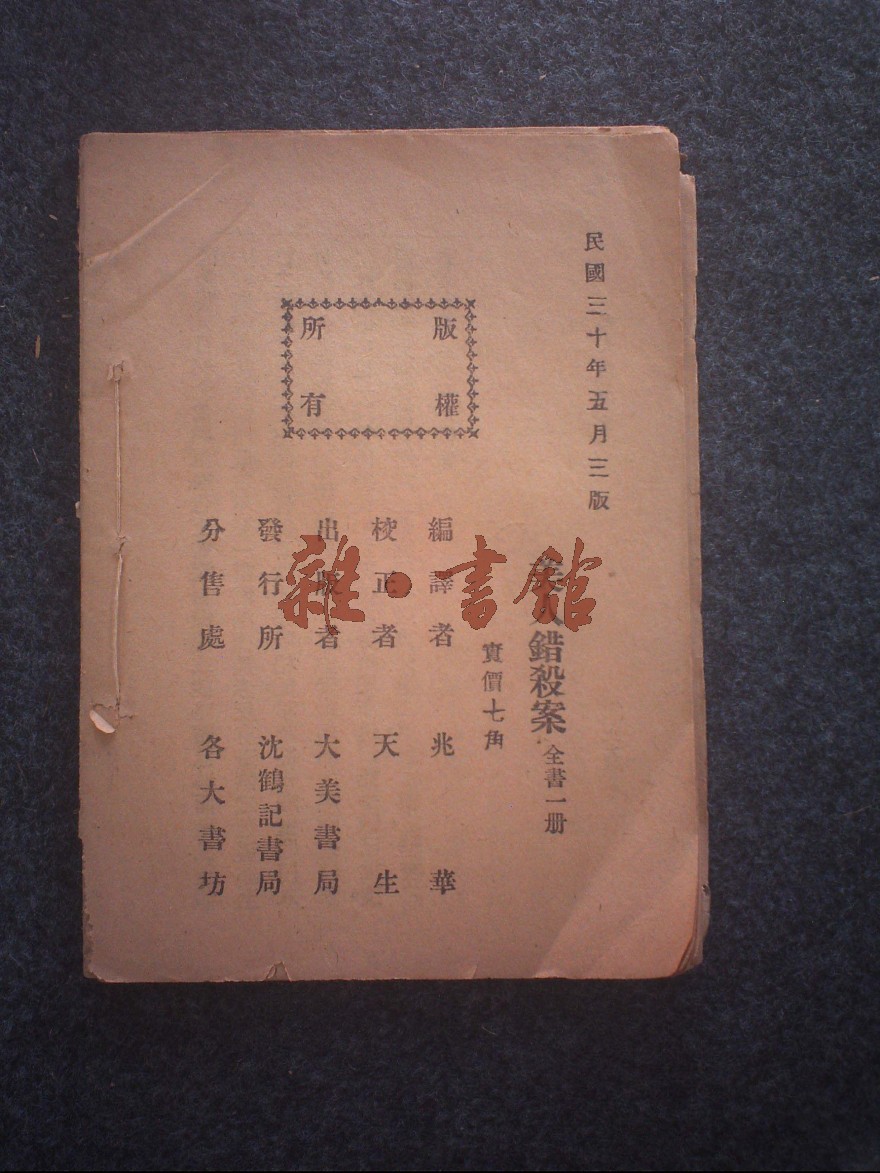 民國三十年五月三版
美人錯殺案 全書一册
實價七角
編譯者 兆華
校正者 天生
出版者 大美書局
發行所 沈鶴記書局
分售處 各大書坊
版權
所有
雜·書館